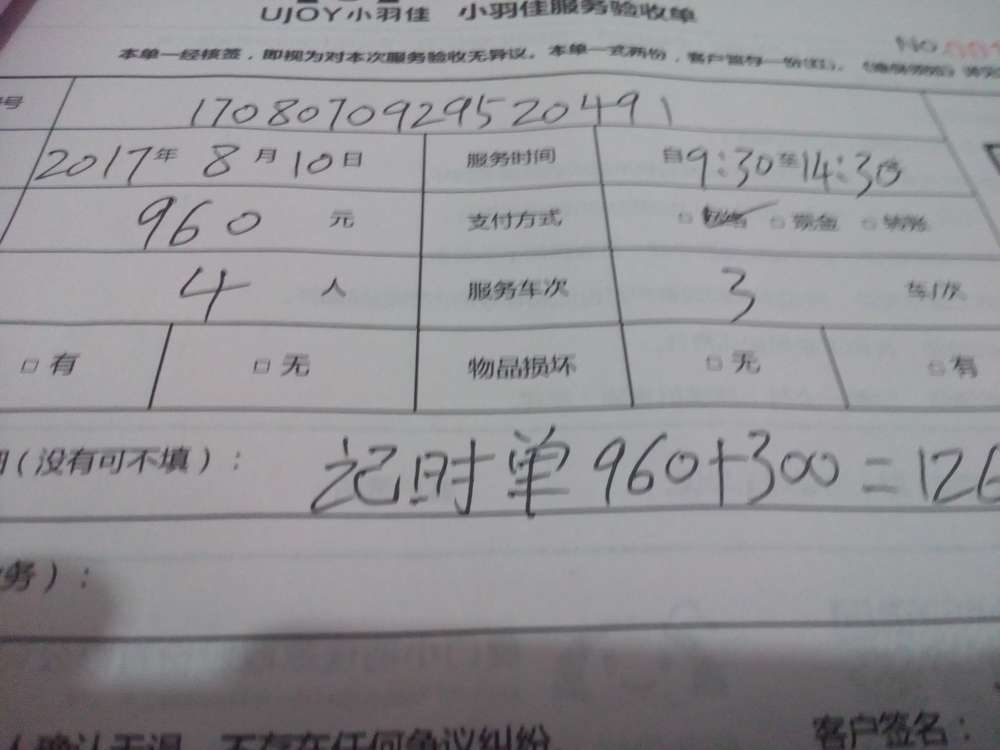 UJOY小羽佳 小羽佳服务验收单
No.
本单一经核签，即视为对本次服务验收无异议。本单一式两份，客户留存一份(红)。
号 170807092952049 1
2017年 8月10日 服务时间 自9:30至14:30
960 元 支付方式 □ □ 现金 □ 转账
4 人 服务车次 3 车/次
□ 有 □ 无 物品损坏 □ 无 □ 有
(没有可不填)： 记时单 960+300=126
务)：
客户签名：
(确认无误，不存在任何争议纠纷